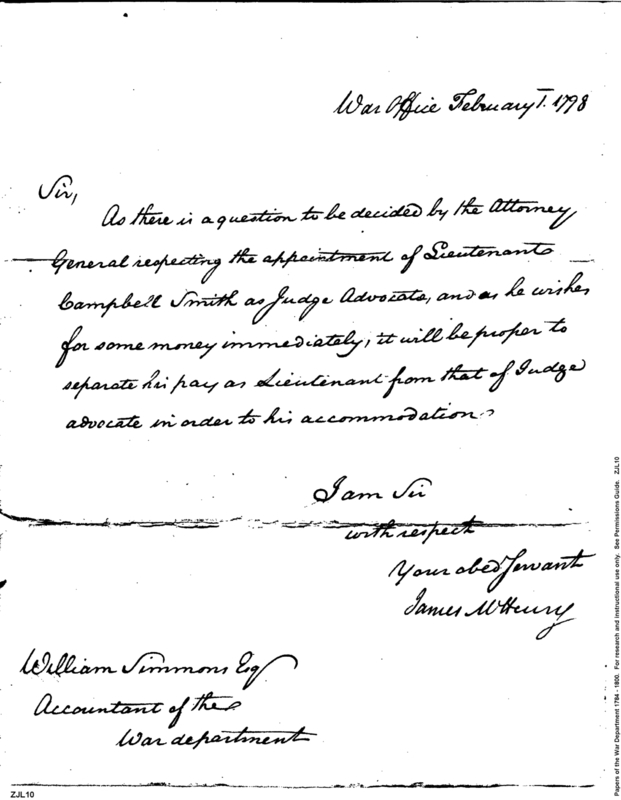 War Office February 1. 1798
Sir,
As there is a question to be decided by the Attorney
General respecting the appointment of Lieutenant
Campbell Smith as Judge Advocate, and as he wishes
for some money immediately, it will be proper to
separate his pay as Lieutenant from that of Judge
advocate in order to his accommodation.
I am Sir
with respect
Your obed Servant
James McHenry
William Simmons Esq
Accountant of the
War department
ZJL10
Papers of the War Department 1784 - 1800. For research and instructional use only. See Permissions Guide. ZJL10